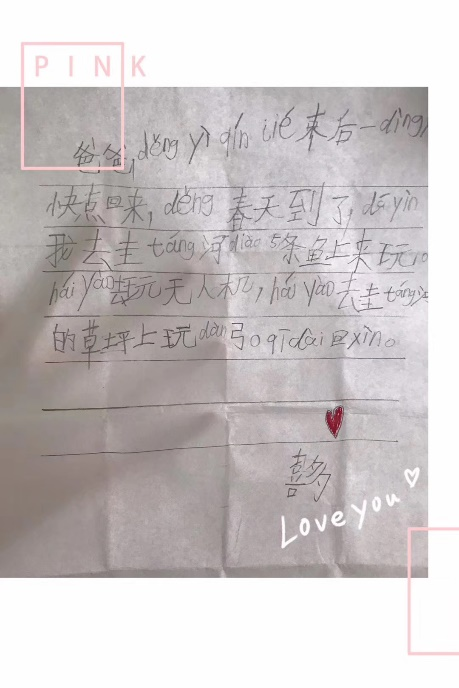 PINK
爸爸,děng yì qín jié束后一dìng
快点回来,děng 春天到了,dā yìn
我去圭táng河diào 5条鱼上来玩,
hái yào去玩无人机,hái yào 去圭táng河
的草坪上玩dàn弓。qī dài 回xìn。
喜多
Love you